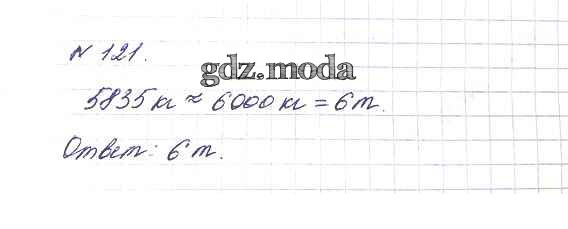 N 121.
gdz.moda
5835 кг ≈ 6000 кг = 6 т.
Ответ: 6 т.